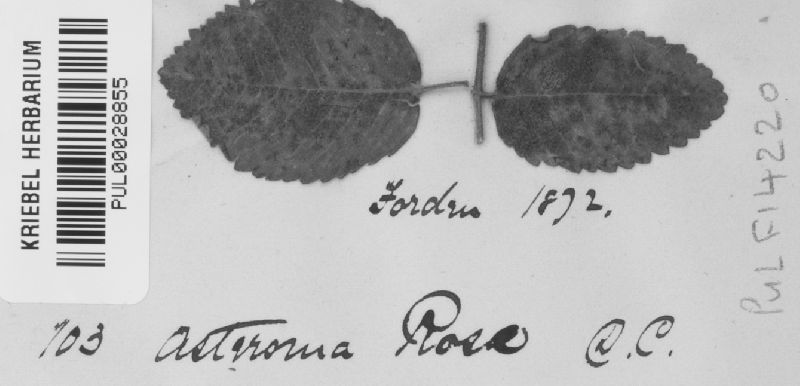 KRIEBEL HERBARIUM
PUL00028855
Forden 1872.
PUL F14220
103 Asteroma Rosae D.C.